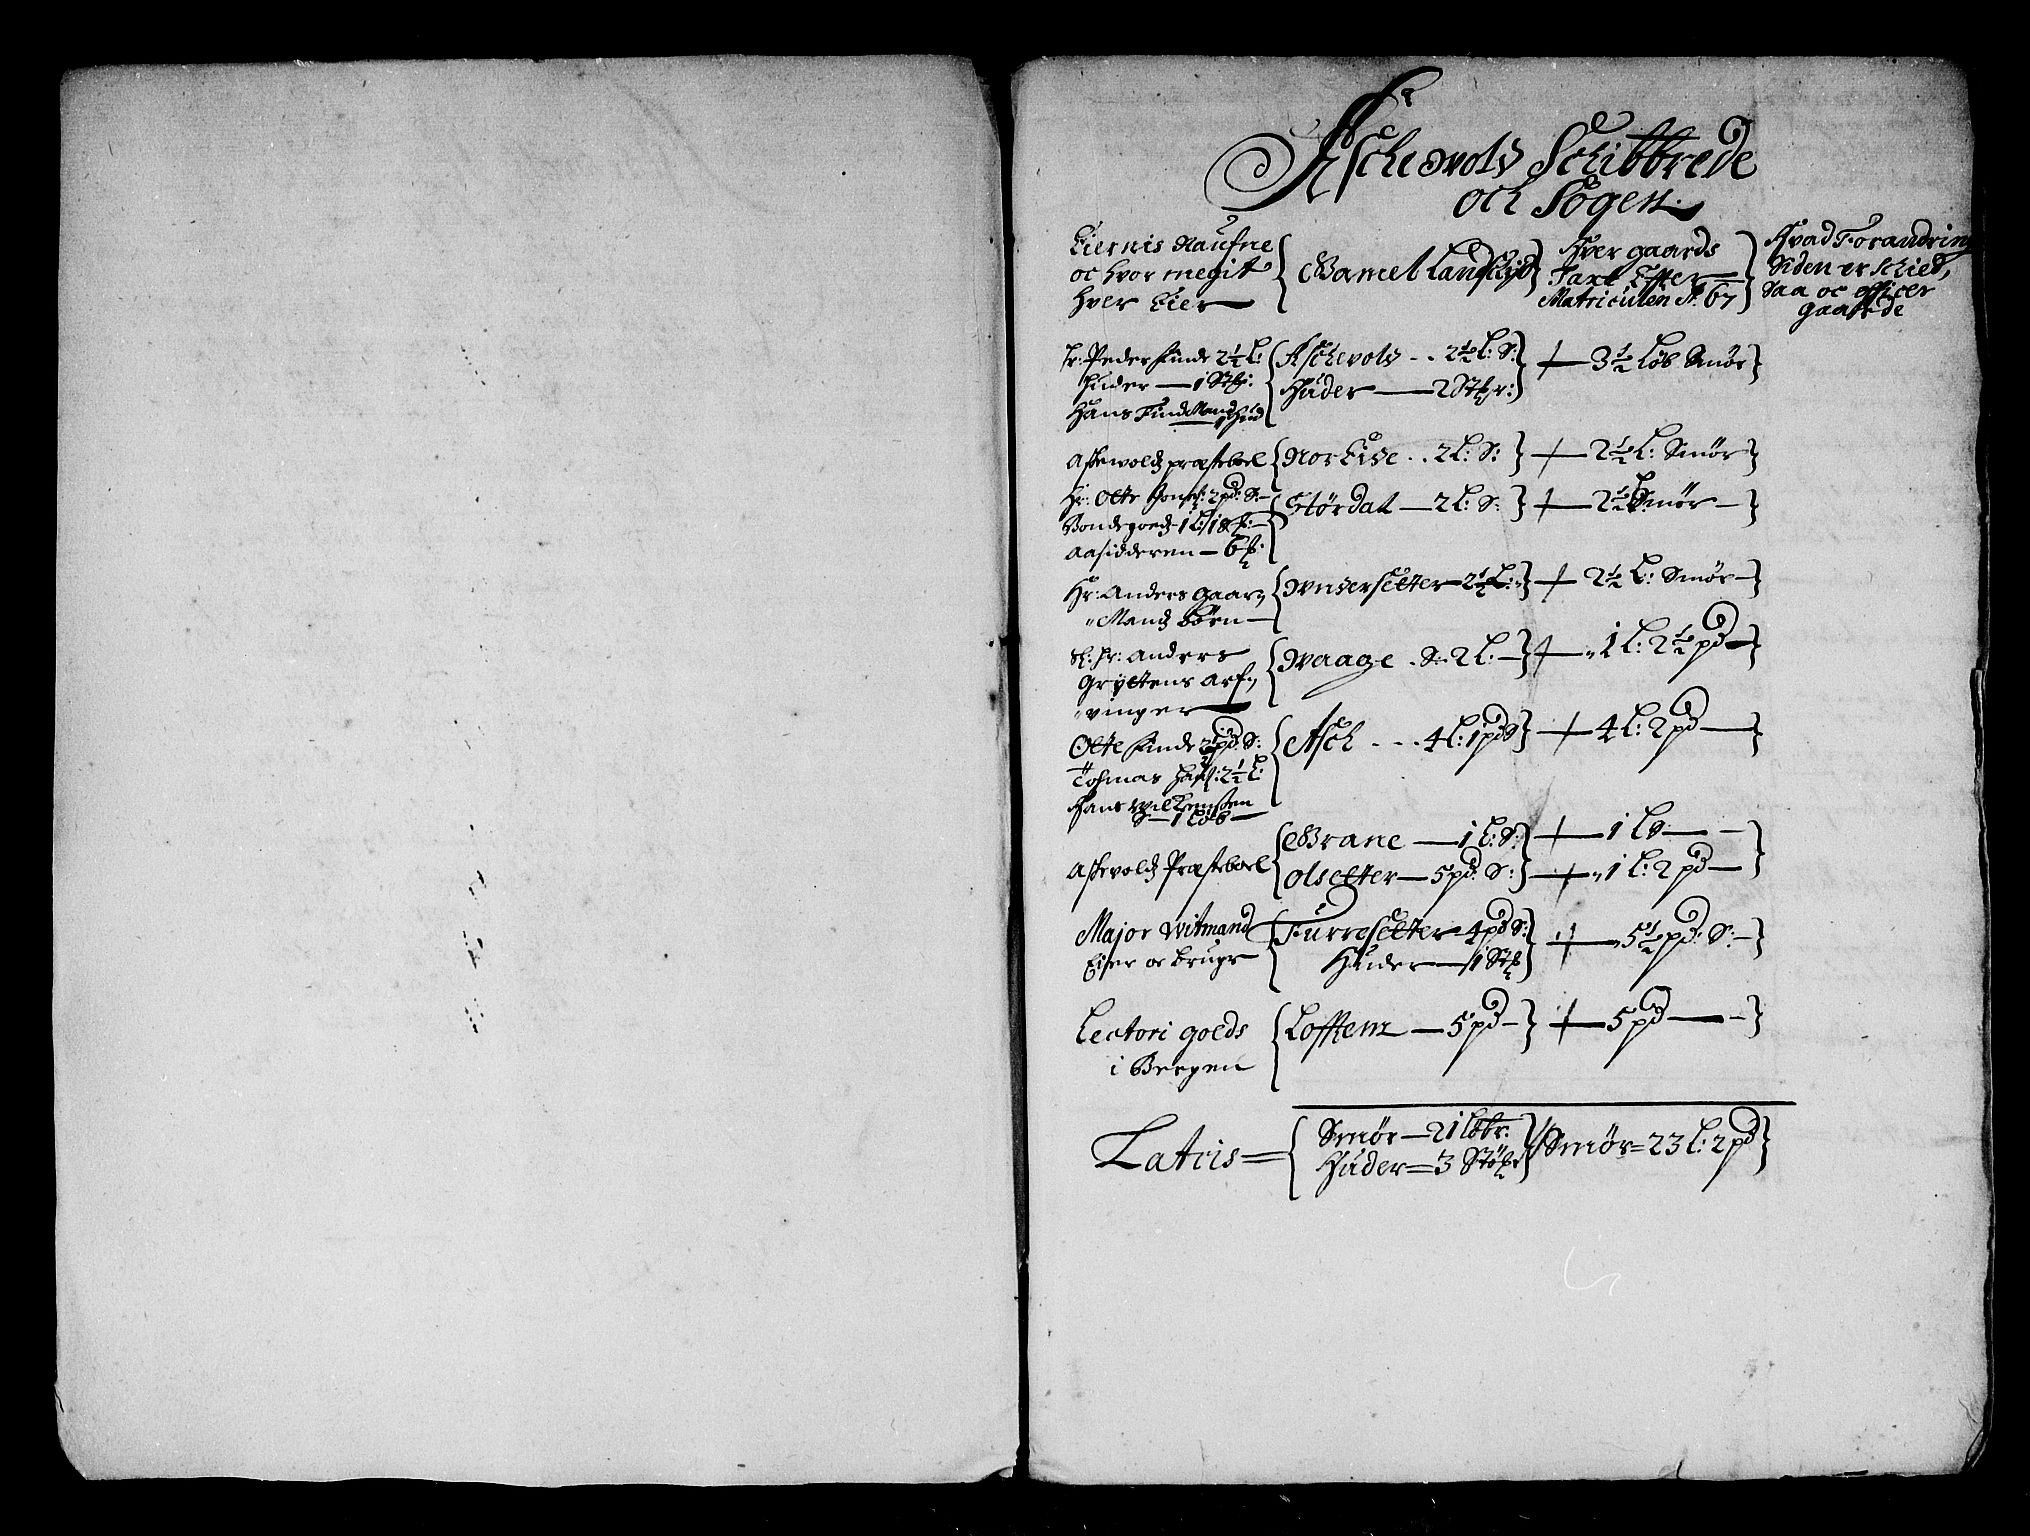 Aschevols Schibbrede
och Sogen
Eiernis Naufne
oc hvor megit
hver Eier
Gamel Landskyld
Hver gaards
Taxt Effter
Matriculen A: 67
Hvad Forandring
Siden er Skied,
Saa oc officer
gaarde
Hr: Peder Finde 2½ L:
Huder — 1 Stk:
Hans Findemand 1 Hud
Aschevols - - 2½ L: S:
Huder — 2 Stkr:
3½ Løb Smør
Askevolds præsteboel
Noreise - - 2 L: S:
2½ L: Smør
Hr: Otte Jons: 2 pd: S:
Bondegoeds 1 L: 18
Aasidderen — 6
Stórdal — 2 L: S:
2½ L: Smør
Hr: Anders gaar,,
,,Mands børn
Wnsersetter 2½ L:
2½ L: Smør
Sl: Hr: Anders
Gryttens Arf,,
,,vinger
Waage - S: 2 L:
1 L: 2½ pd
Otte Finde 2½ pd: S:
Tohmas Hans: 2½ L:
Hans Willemsen
S — 1 Løb
Asch - - - 4 L: 1 pd S
4 L: 2 pd
Askevolds Præsteboel
Grane — 1 L: S:
1 L S
Olsetter — 5 pd: S:
1 L: 2 pd
Major Witmand
Eier oc bruger
Furresetter 4 pd S:
Huder — 1 Stk
5½ pd: S:
Lectori goeds
i Bergen
Lofftenz — 5 pd
5 pd
Latris =
Smør — 21 Løbr:
Huder = 3 Støkr
Smør = 23 L: 2 pd